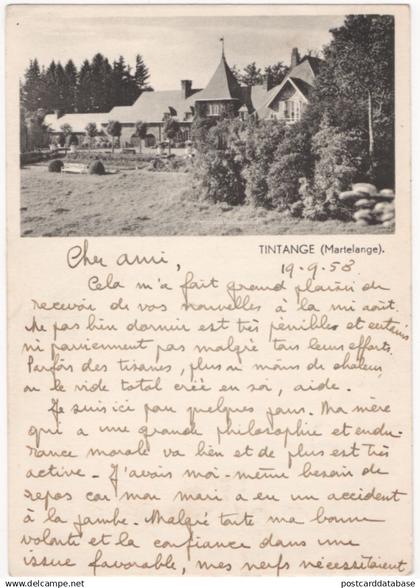 TINTANGE (Martelange).
Cher ami,
19.9.58
Cela m'a fait grand plaisir de
recevoir de vos nouvelles à la mi août.
Ne pas bien dormir est très pénibles et
ni parviennent pas malgré tous leurs efforts.
Parfois des tisanes, plus ou moins de chaleur
ou le vide total créé en soi, aide.
Je suis ici pour quelques jours. Ma mère
qui a une grande philosophie et endu-
rance morale va bien et de plus est très
active - J'avais moi-même besoin de
repos car mon mari a eu un accident
à la jambe. Malgré toute ma bonne
volonté et la confiance dans une
issue favorable, mes nerfs nécessitaient
www.delcampe.net
postcardandstamp